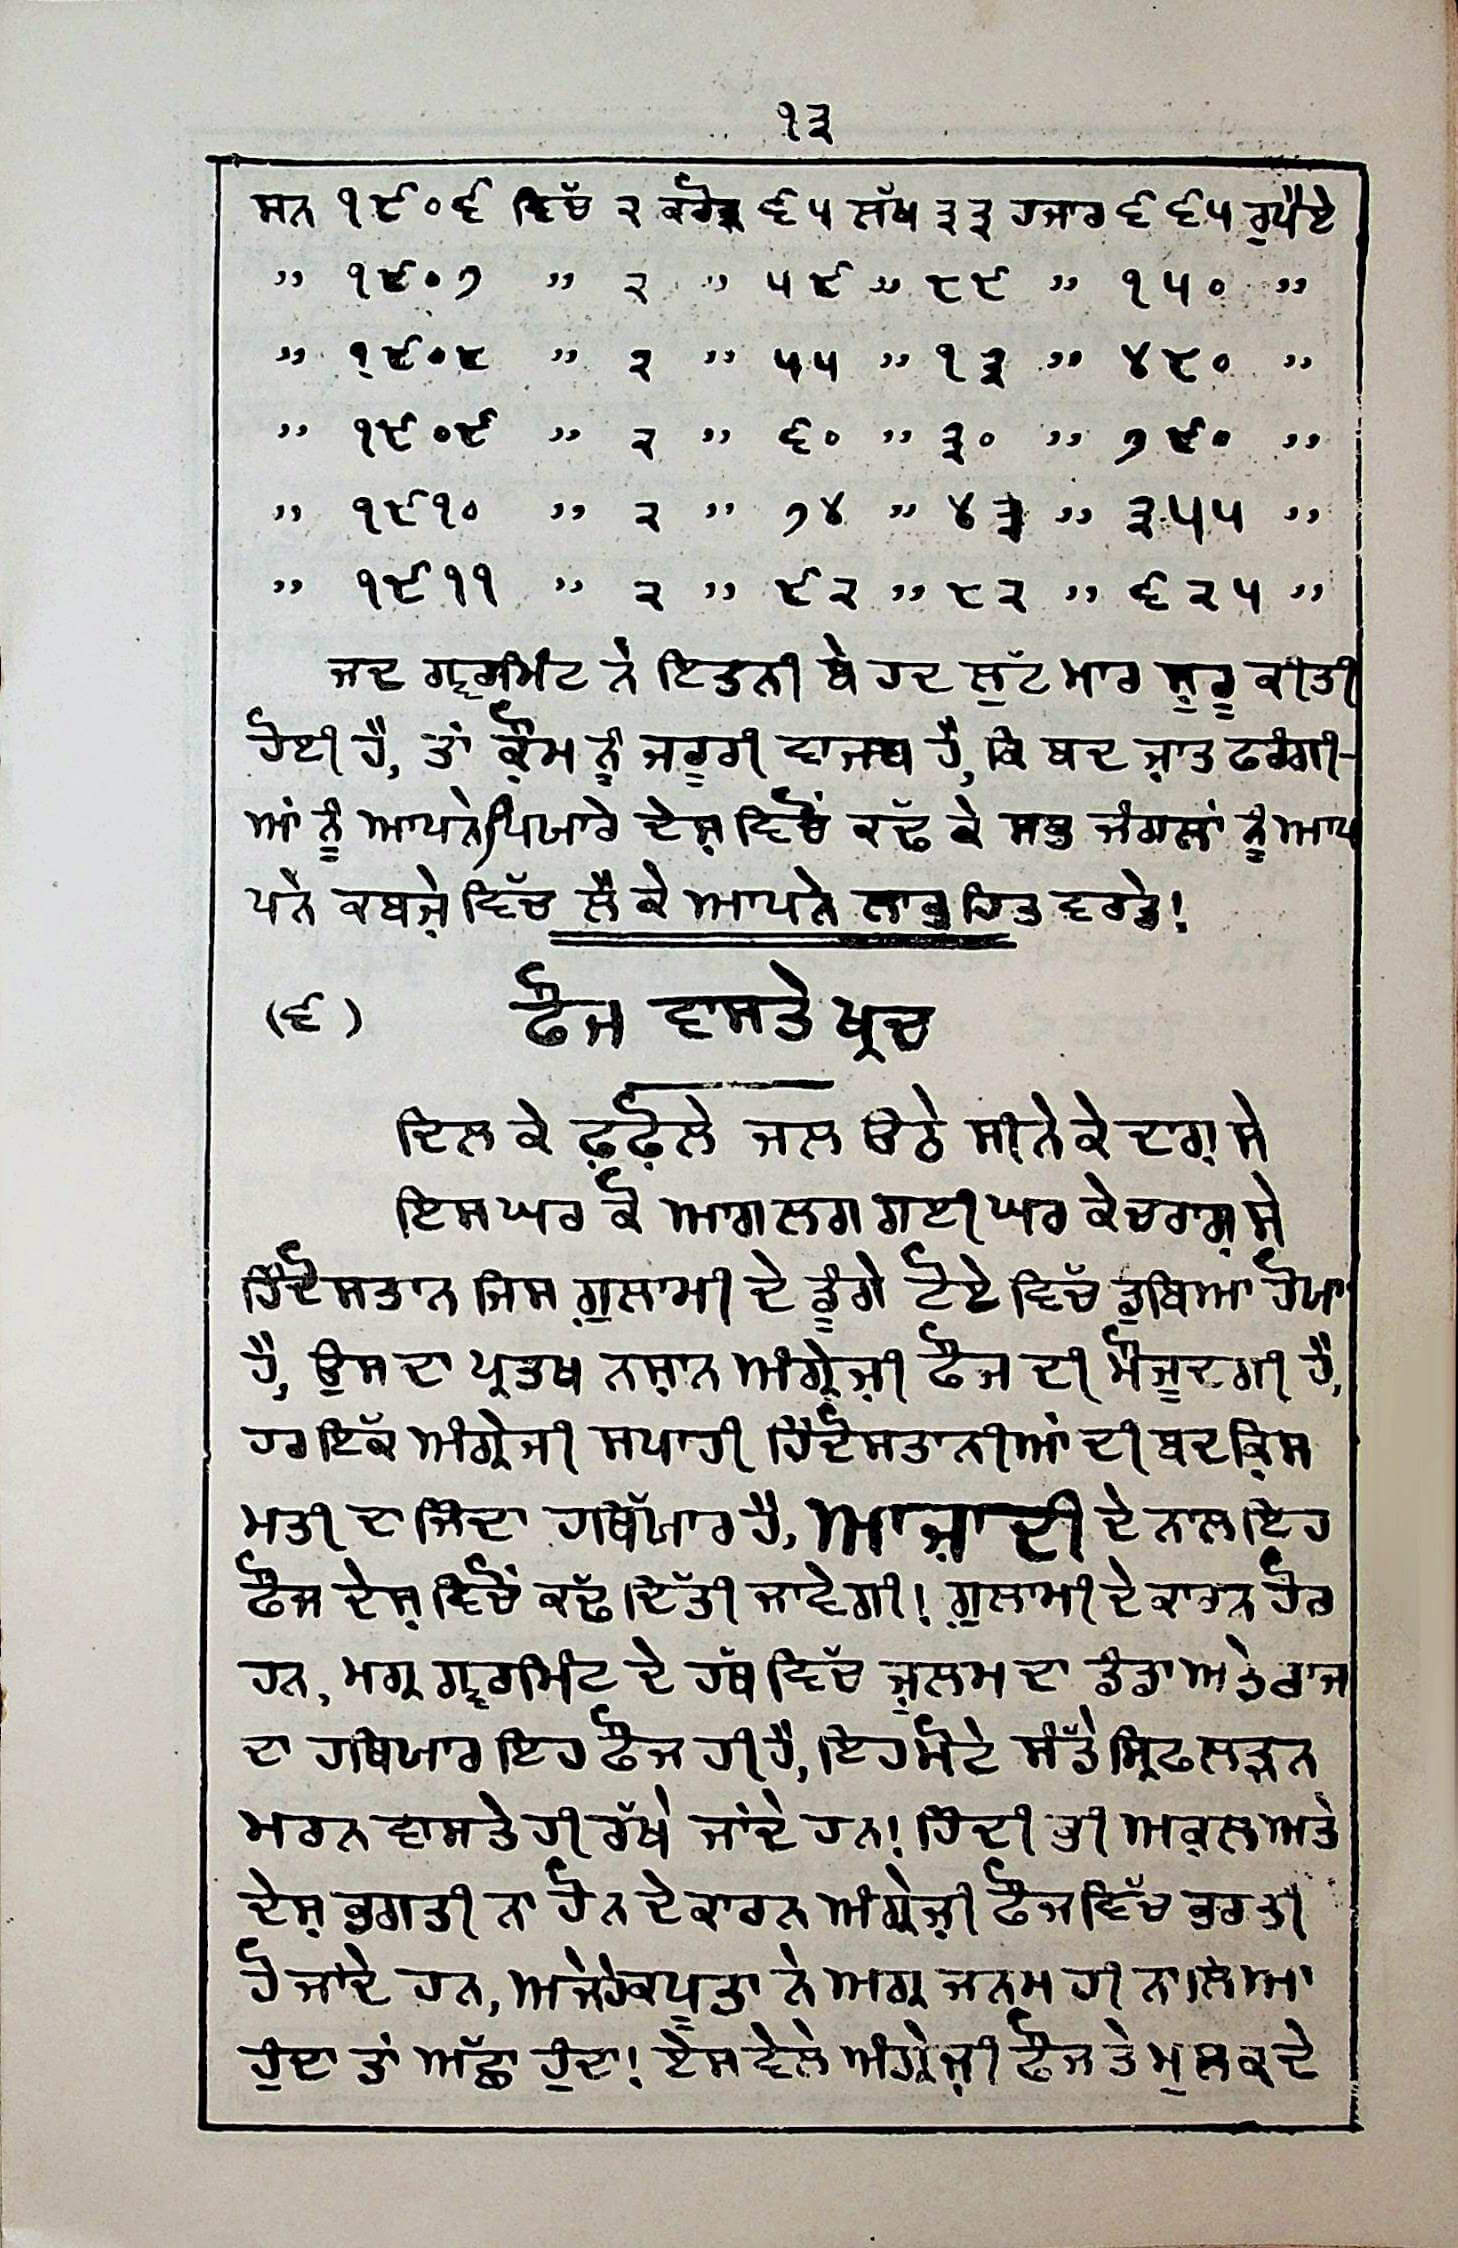 ੧੩
ਸਨ ੧੯੦੬ ਵਿੱਚ ੨ ਕਰੋੜ ੬੫ ਲੱਖ ੩੩ ਹਜਾਰ ੬੬੫ ਰੁਪੈਏ
" ੧੯੦੭ " ੨ " ੫੯ " ੮੯ " ੧੫੦ "
" ੧੯੦੮ " ੨ " ੫੫ " ੧੩ " ੪੮੦ "
" ੧੯੦੯ " ੨ " ੬੦ " ੩੦ " ੭੯੦ "
" ੧੯੧੦ " ੨ " ੭੪ " ੪੩ " ੩੫੫ "
" ੧੯੧੧ " ੨ " ੯੨ " ੮੨ " ੬੨੫ "
ਜਦ ਗੵਰਮਿੰਟ ਨੇ ਇਤਨੀ ਬੇ ਹਦ ਲੁੱਟ ਮਾਰ ਸ਼ੁਰੂ ਕੀਤੀ
ਹੋਈ ਹੈ, ਤਾਂ ਕੌਮ ਨੂੰ ਜਰੂਰੀ ਵਾਜਬ ਹੈ, ਕਿ ਬਦ ਜ਼ਾਤ ਫਰੰਗੀ-
ਆਂ ਨੂੰ ਆਪਨੇ ਪਿਯਾਰੇ ਦੇਸ਼ ਵਿਚੋਂ ਕਢੱ ਕੇ ਸਭ ਜੰਗਲਾਂ ਨੂੰ ਆਪ
ਪਨੇ ਕਬਜ਼ੇ ਵਿੱਚ ਲੈ ਕੇ ਆਪਨੇ ਲਾਭ ਹਿਤ ਵਰਤੇ!
(੬) ਫੌਜ ਵਾਸਤੇ ਖ੍ਰਚ
ਦਿਲ ਕੇ ਫ਼ਫ਼ੋਲੇ ਜਲ ਉਠੇ ਸੀਨੇ ਕੇ ਦਾਗ਼ ਸੇ
ਇਸ ਘਰ ਕੋ ਆਗ ਲਗ ਗਈ ਘਰ ਕੇ ਚਰਾਗ਼ ਸੇ
ਹਿੰਦੋਸਤਾਨ ਜਿਸ ਗ਼ੁਲਾਮੀ ਦੇ ਡੂੰਗੇ ਟੋਏ ਵਿੱਚ ਡੁਬਿਆ ਹੋਯਾ
ਹੈ, ਉਸ ਦਾ ਪ੍ਰਤਖ ਨਸ਼ਾਨ ਅੰਗ੍ਰੇਜ਼ੀ ਫੌਜ ਦੀ ਮੌਜੂਦਗੀ ਹੈ,
ਹਰ ਇੱਕ ਅੰਗ੍ਰੇਜੀ ਸਪਾਹੀ ਹਿੰਦੋਸਤਾਨੀਆਂ ਦੀ ਬਦ ਕਿਸ
ਮਤੀ ਦਾ ਜਿੰਦਾ ਹਥਿੱਯਾਰ ਹੈ, ਆਜ਼ਾਦੀ ਦੇ ਨਾਲ ਇਹ
ਫੌਜ ਦੇਸ਼ ਵਿਚੋਂ ਕਢੱ ਦਿੱਤੀ ਜਾਵੇਗੀ! ਗ਼ੁਲਾਮੀ ਦੇ ਕਾਰਨ ਹੋਰ
ਹਨ, ਮਗ੍ਰ ਗੵਰਮਿੰਟ ਦੇ ਹੱਥ ਵਿੱਚ ਜ਼ੁਲਮ ਦਾ ਡੰਡਾ ਅਤੇ ਰਾਜ
ਦਾ ਹਥਿਯਾਰ ਇਹ ਫੌਜ ਹੀ ਹੈ, ਇਹ ਮੋਟੇ ਸੰਡੇ ਸ੍ਰਿਫ ਲੜਨ
ਮਰਨ ਵਾਸਤੇ ਹੀ ਰੱਖੇ ਜਾਂਦੇ ਹਨ! ਹਿੰਦੀ ਭੀ ਅਕ਼ਲ ਅਤੇ
ਦੇਸ਼ ਭਗਤੀ ਨਾ ਹੋਨ ਦੇ ਕਾਰਨ ਅੰਗ੍ਰੇਜ਼ੀ ਫੌਜ ਵਿੱਚ ਭਰਤੀ
ਹੋ ਜਾਂਦੇ ਹਨ, ਅਜੇਹੇ ਕਪੂਤਾਂ ਨੇ ਅਗ੍ਰ ਜਨਮ ਹੀ ਨਾ ਲਿਆ
ਹੁੰਦਾ ਤਾਂ ਅੱਛਾ ਹੁੰਦਾ! ਏਸ ਵੇਲੇ ਅੰਗ੍ਰੇਜ਼ੀ ਫੌਜ ਤੇ ਮੁਲਕ ਦੇ